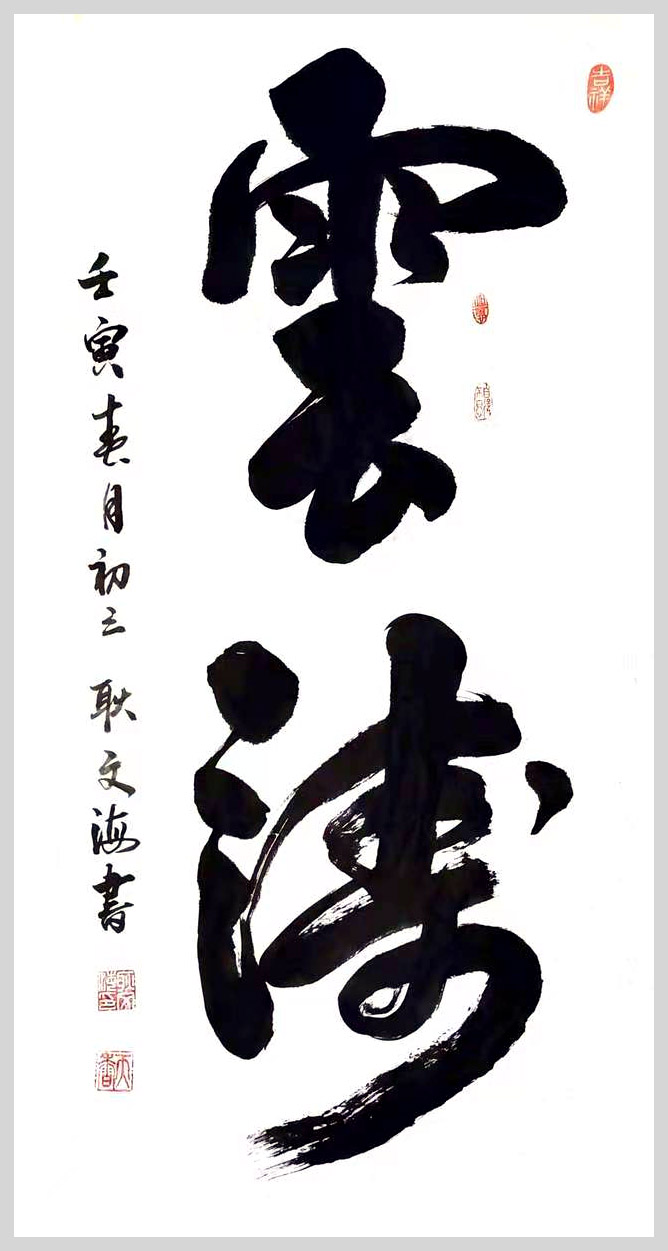 吉祥
雲濤
壬寅春月初三 耿文海書